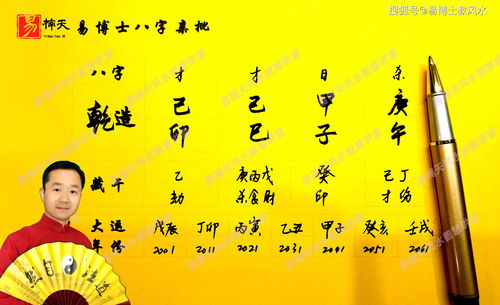 搜狐号@易博士教风水
易 神天 易博士八字集批
八字 才 才 日 杀
乾造 己 己 甲 庚
卯 巳 子 午
藏干 乙 庚丙戊 癸 己丁
劫 杀食财 印 才伤
大运 戊辰 丁卯 丙寅 乙丑 甲子 癸亥 壬戌
年份 2001 2011 2021 2031 2041 2051 2061
道 自然